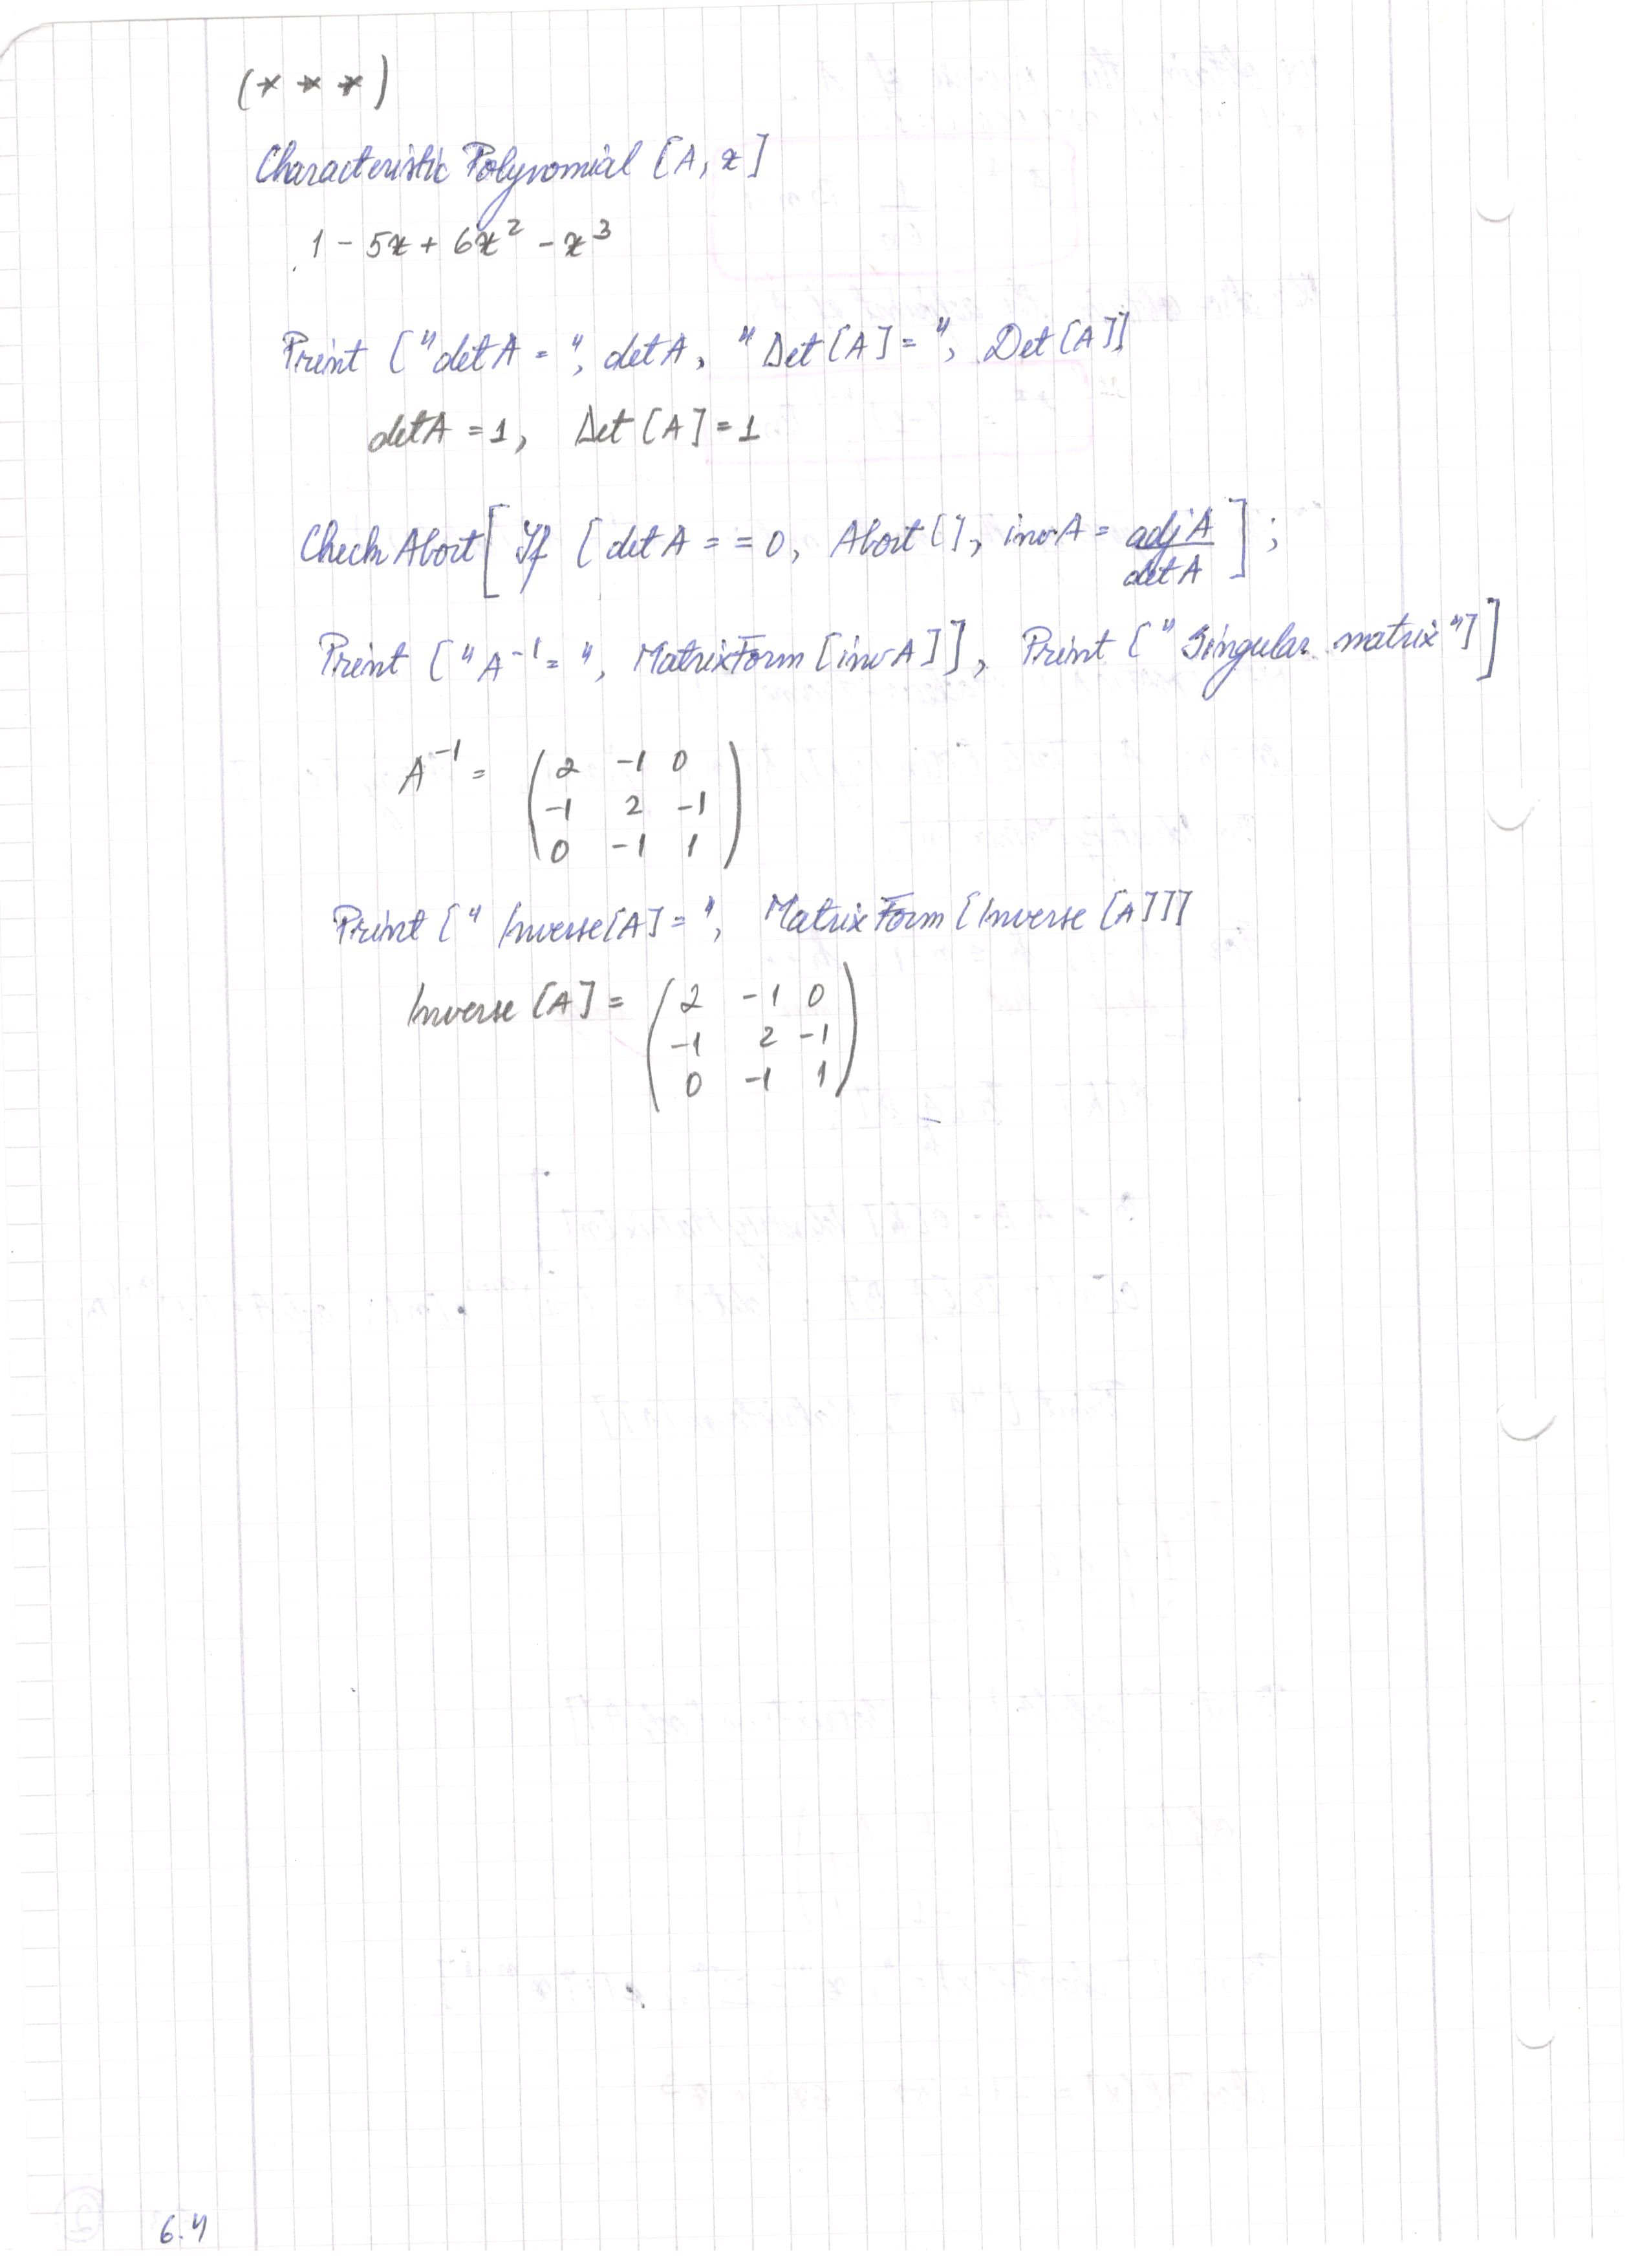 (***)
Characteristic Polynomial [A, x]
1 - 5x + 6x² - x³
Print ["detA = ", detA, "Det[A] = ", Det[A]]
detA = 1, Det[A] = 1
Check Abort[If [detA == 0, Abort[], invA = adjA/detA];
Print ["A⁻¹ = ", MatrixForm [invA]], Print ["Singular matrix"]]
A⁻¹ = (2 -1 0
-1 2 -1
0 -1 1)
Print ["Inverse[A] = ", MatrixForm [Inverse [A]]]
Inverse [A] = (2 -1 0
-1 2 -1
0 -1 1)
6.4